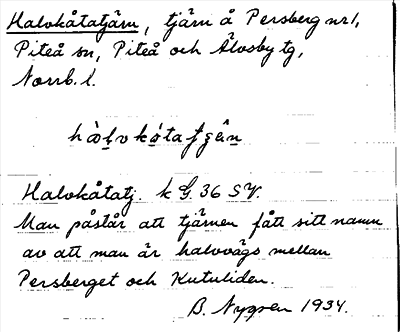 Halvkåtatjärn, tjärn å Persberg nr 1,
Piteå sn, Piteå och Älvsby tg,
Norrb. l.
Halvkåtatj. k G. 36 SV.
Man påstår att tjärnen fått sitt namn
av att man är halvvägs mellan
Persberget och Kutuliden.
B. Nygren 1934.